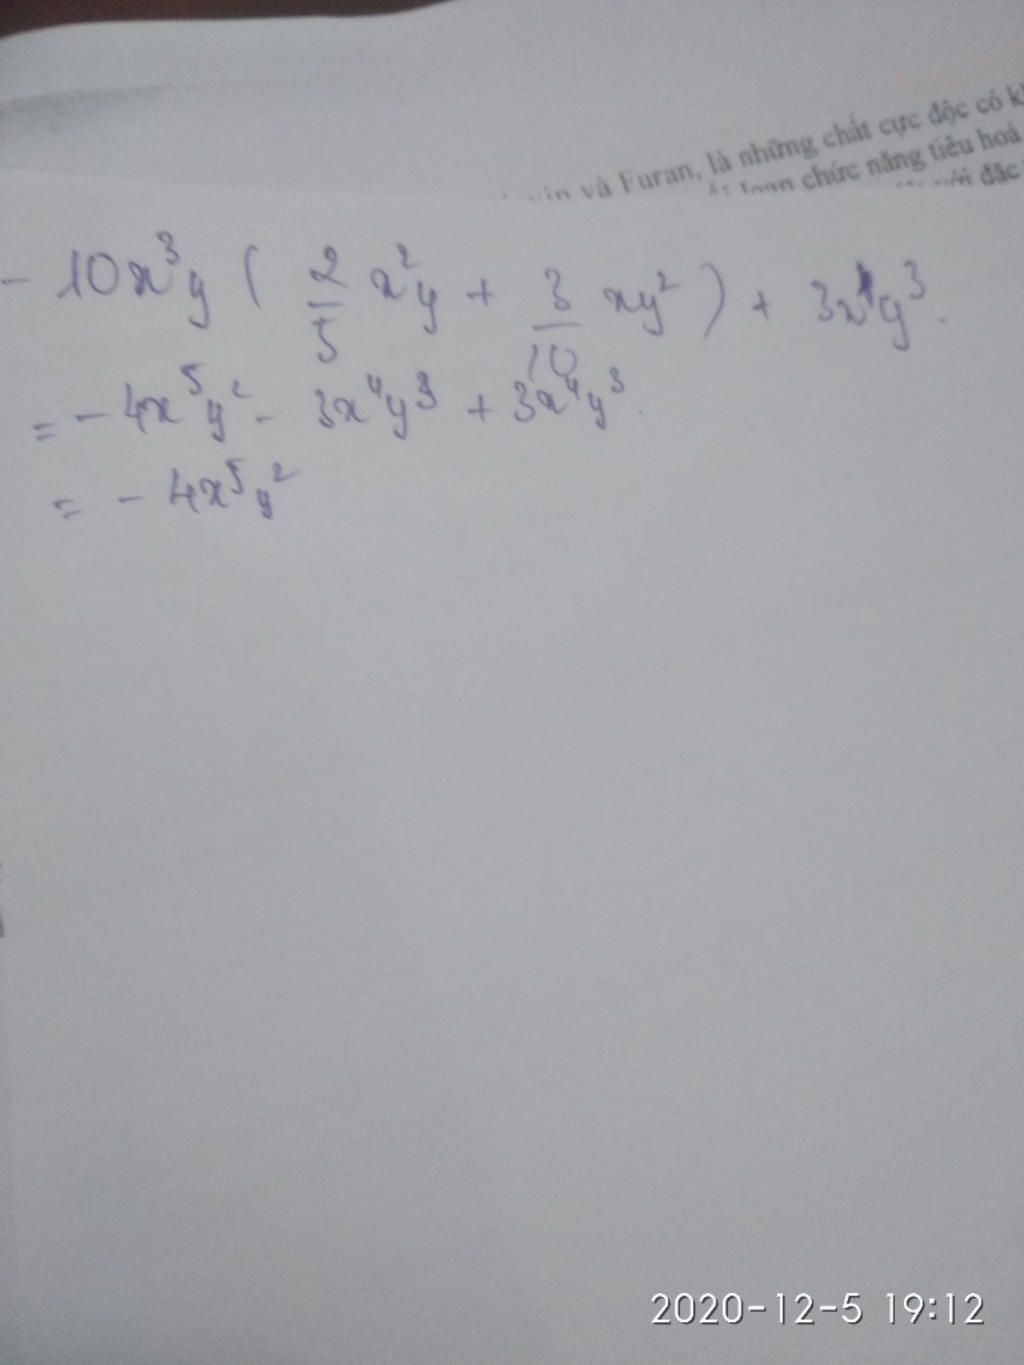 và Furan, là những chất cực độc có
chức năng tiêu hoá
với đặc
- 10x³y ( 2/5 x²y + 3/10 xy² ) + 3x⁴y³.
= - 4x⁵y² - 3x⁴y³ + 3x⁴y³.
= - 4x⁵y²
2020-12-5 19:12